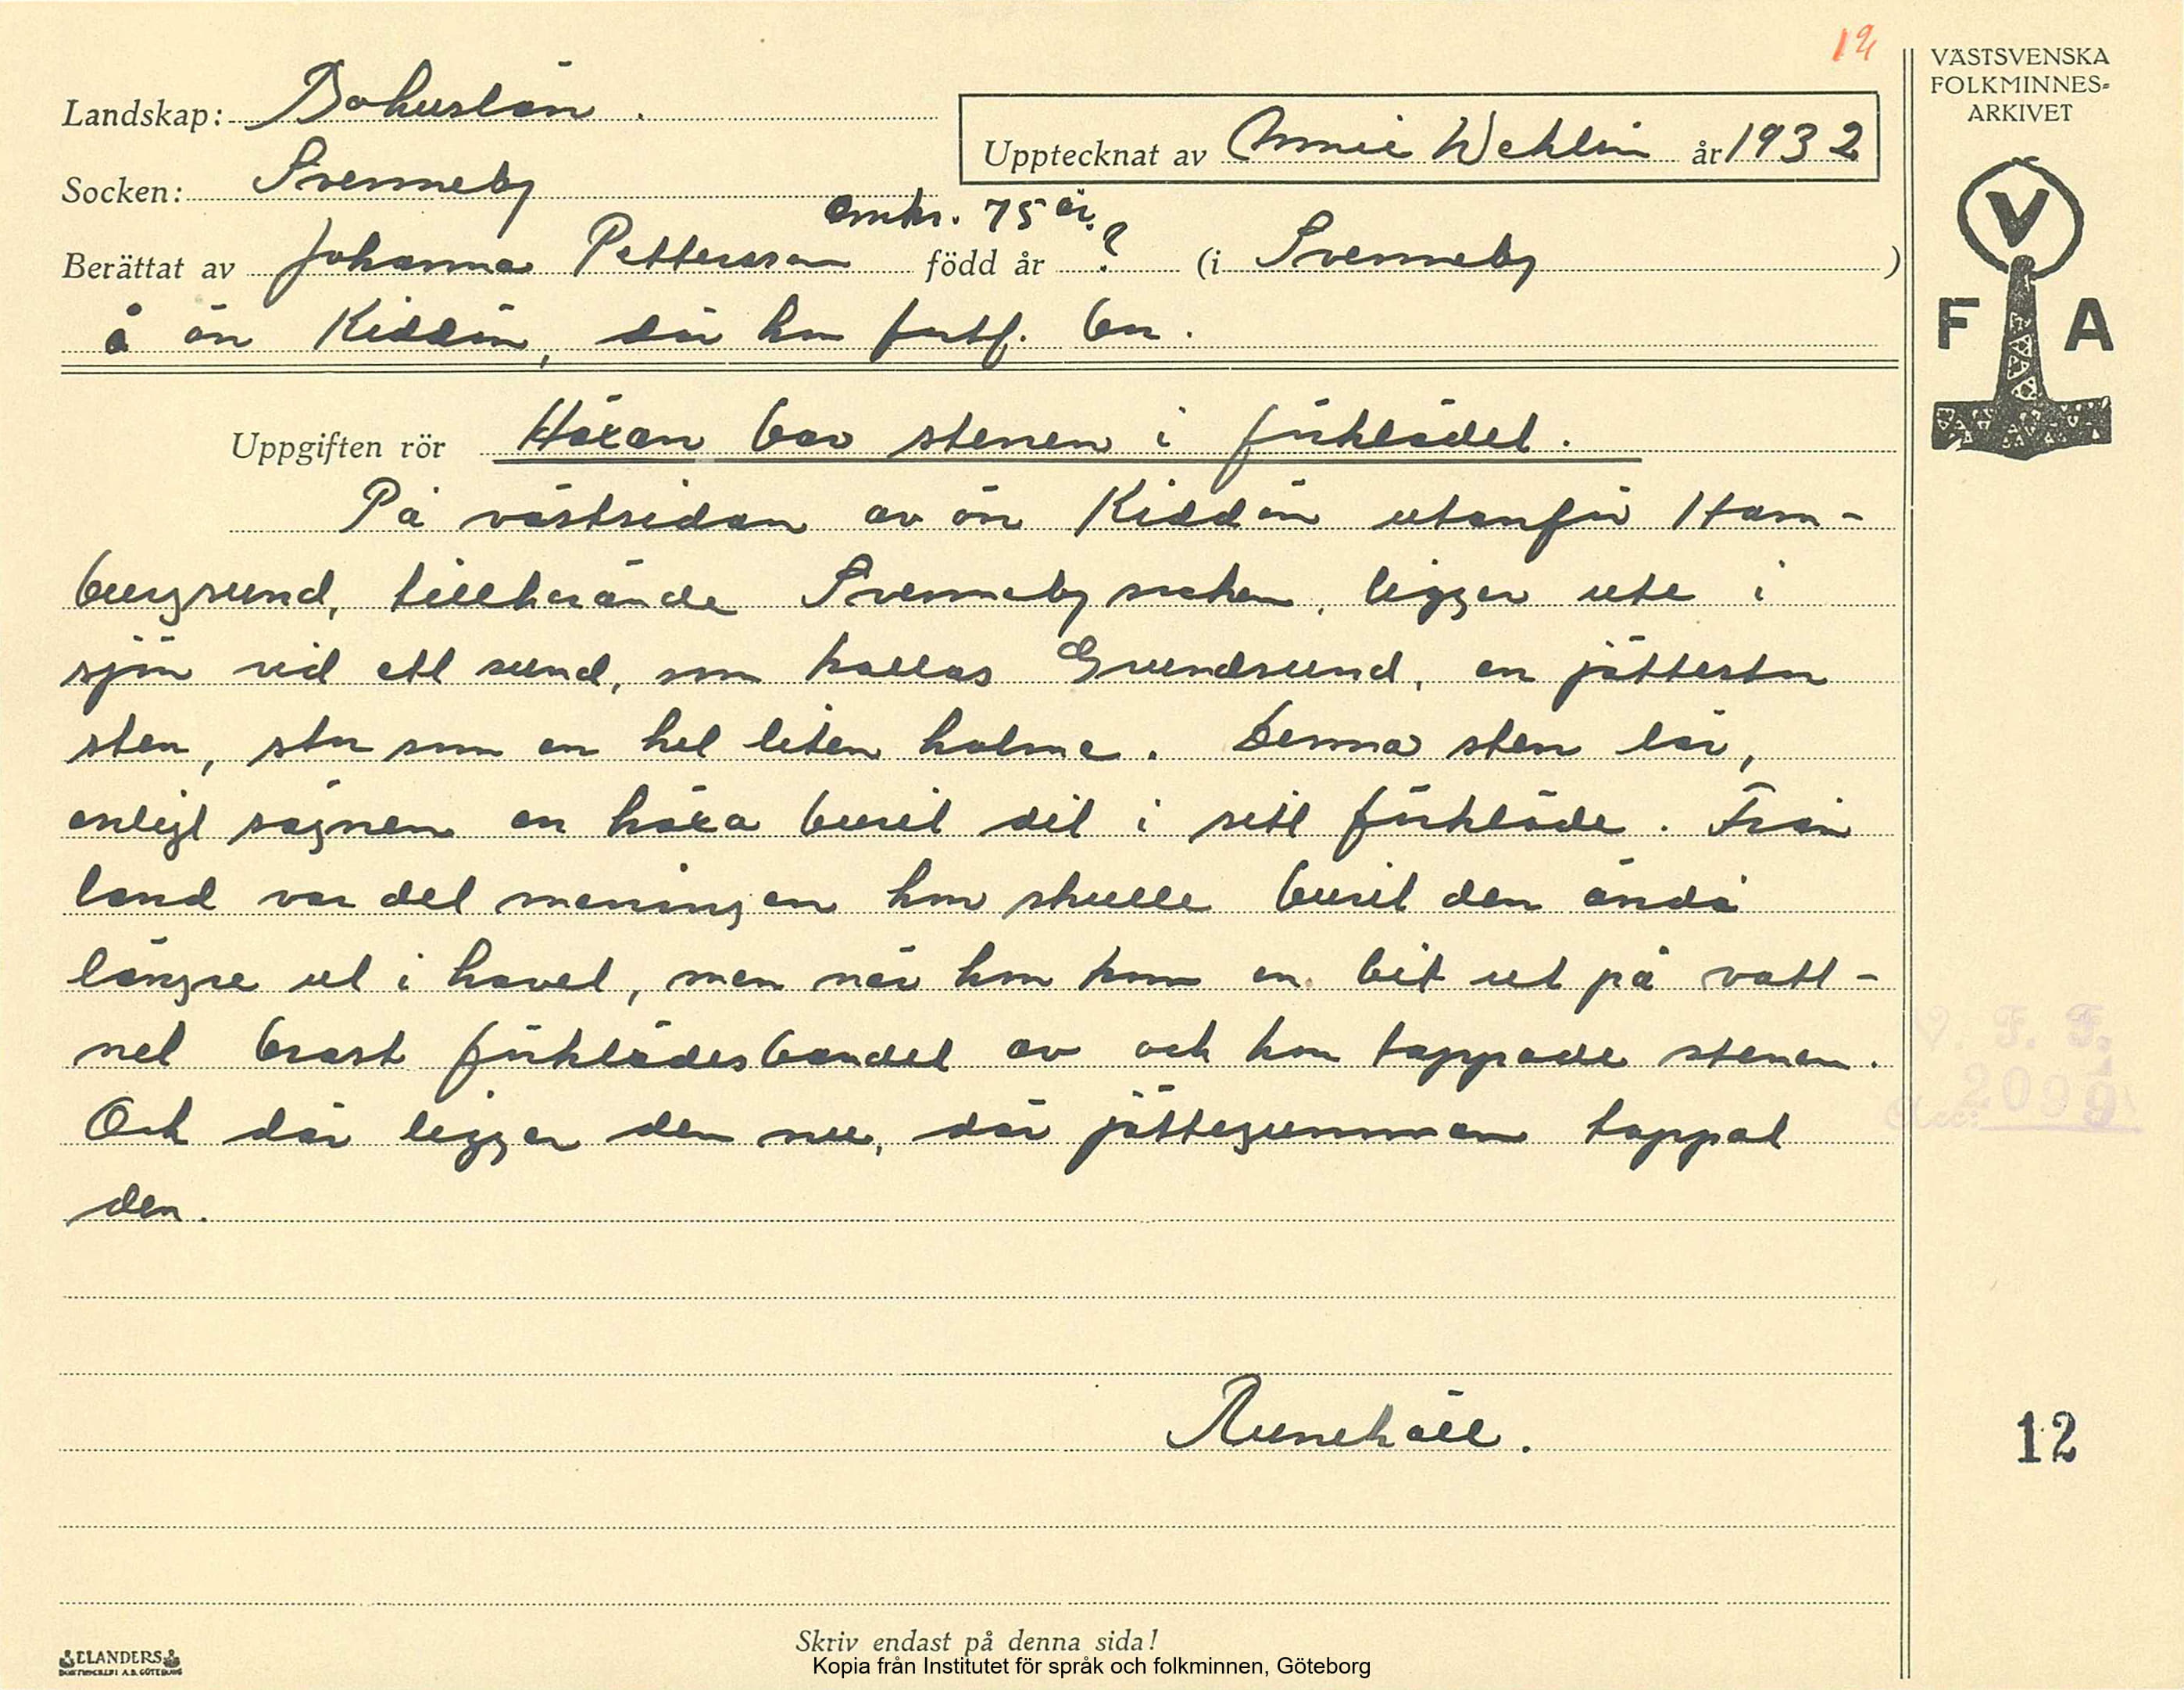 12
VÄSTSVENSKA
FOLKMINNES-
ARKIVET
Landskap: Bohuslän.
Upptecknat av Annie Wehlin år 1932
Socken: Svenneby
omkr. 75 år.
Berättat av Johanna Pettersson född år ? (i Svenneby )
å ön Kiddön, där hon fortf. bor.
V
F A
Uppgiften rör Häxan bar stenen i förklädet.
På västsidan av ön Kiddön utanför Ham-
burgsund, tillhörande Svenneby socken, ligger ute i
sjön vid ett sund, som kallas Grundsund, en jättestor
sten, stor som en hel liten holme. Denna sten lär,
enligt sägnen en häxa burit dit i sitt förkläde. Från
land var det meningen hon skulle burit den ändå
längre ut i havet, men när hon kom en bit ut på vatt-
net brast förklädesbandet av och hon tappade stenen.
Och där ligger den nu, där jättegumman tappat
den.
V. F. F.
Acc: 2099
Runehäll.
12
Skriv endast på denna sida!
ELANDERS
BOKTRYCKERI A.B. GÖTEBORG
Kopia från Institutet för språk och folkminnen, Göteborg